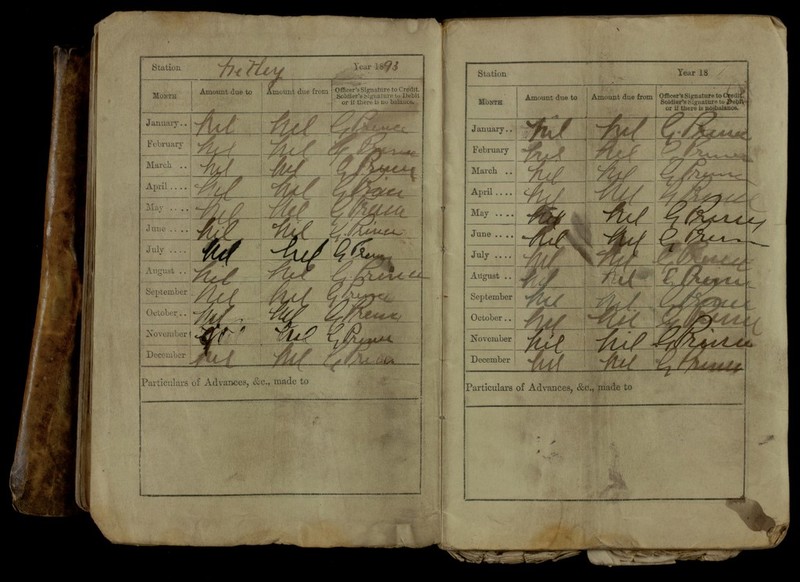 Station Netley Year 1893
Month Amount due to Amount due from Officer's Signature to Credit. Soldier's Signature to Debit or if there is no balance.
January.. Nil Nil G Prince
February Nil Nil G Prince
March .. Nil Nil G Prince
April .... Nil Nil G Prince
May ..... Nil Nil G Prince
June ..... Nil Nil G. Prince
July .... Nil Nil G Prince
August .. Nil Nil G. Prince
September Nil Nil G Prince
October.. Nil Nil G Prince
November Nil G Prince
December Nil Nil G Prince
Particulars of Advances, &c., made to
Station Year 18
Month Amount due to Amount due from Officer's Signature to Credit. Soldier's Signature to Debit or if there is no balance.
January.. Nil Nil G. Prince
February Nil Nil G Prince
March .. Nil Nil G Prince
April .... Nil Nil G Prince
May ..... Nil Nil G Prince
June ..... Nil Nil G Prince
July ..... Nil Nil G Prince
August .. Nil Nil G Prince
September Nil Nil G Prince
October.. Nil Nil G Prince
November Nil Nil G Prince
December Nil Nil G Prince
Particulars of Advances, &c., made to